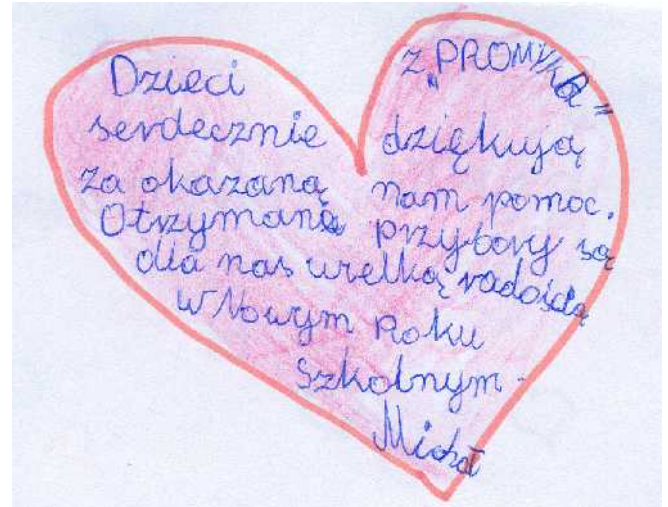 Dzieci z „PROMYKA"
serdecznie dziękują
za okazaną nam pomoc.
Otrzymane przybory są
dla nas wielką radością
w Nowym Roku
Szkolnym.
Michał